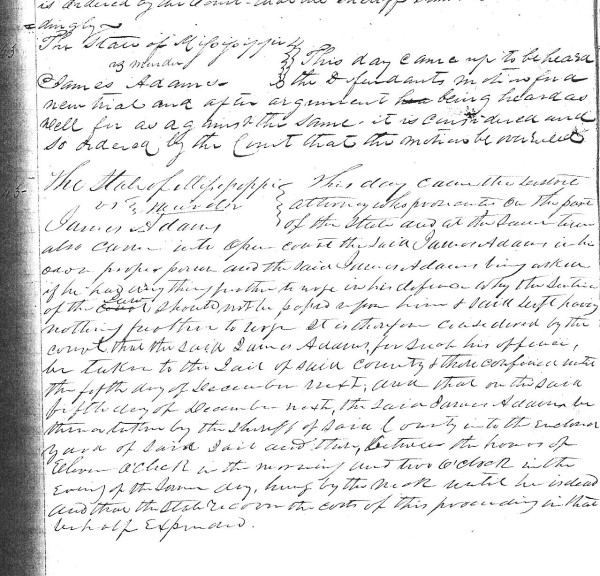 is ordered by the Court that the Sheriff
dingly
The State of Mississippi
vs murder
James Adams
This day came up to be heard
the Defendants motion for a
new trial and after argument being heard as
well for as against the same. it is considered and
so ordered by the Court that the motion be overruled
The State of Mississippi
vs Murder
James Adams
This day came the district
attorney who prosecutes on the part
of the State and at the same time
also came into open court the said James Adams in his
own proper person and the said James Adams being asked
if he had any thing further to urge in his defence why the sentence
of the Law should not be passed upon him & said deft having
nothing further to urge It is therefore considered by the
court that the said James Adams, for such his offence,
be taken to the Jail of said county & there confined until
the fifth day of December next, and that on the said
fifth day of December next, the said James Adams be
then taken by the Sheriff of said County into the enclosed
yard of said Jail and there, between the hours of
Eleven O'Clock in the morning and two O'Clock in the
Evening of the same day, hung by the neck until he is dead
and that the State recover the costs of this proceeding in that
behalf Expended.